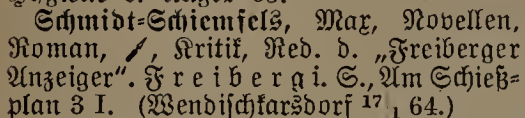 Schmidt=Schiemfels, Max, Novellen,
Roman, Kritik, Red. d. „Freiberger
Anzeiger“. Freiberg i. S., Am Schieß=
plan 3 I. (Wendischkarsdorf 17/1 64.)